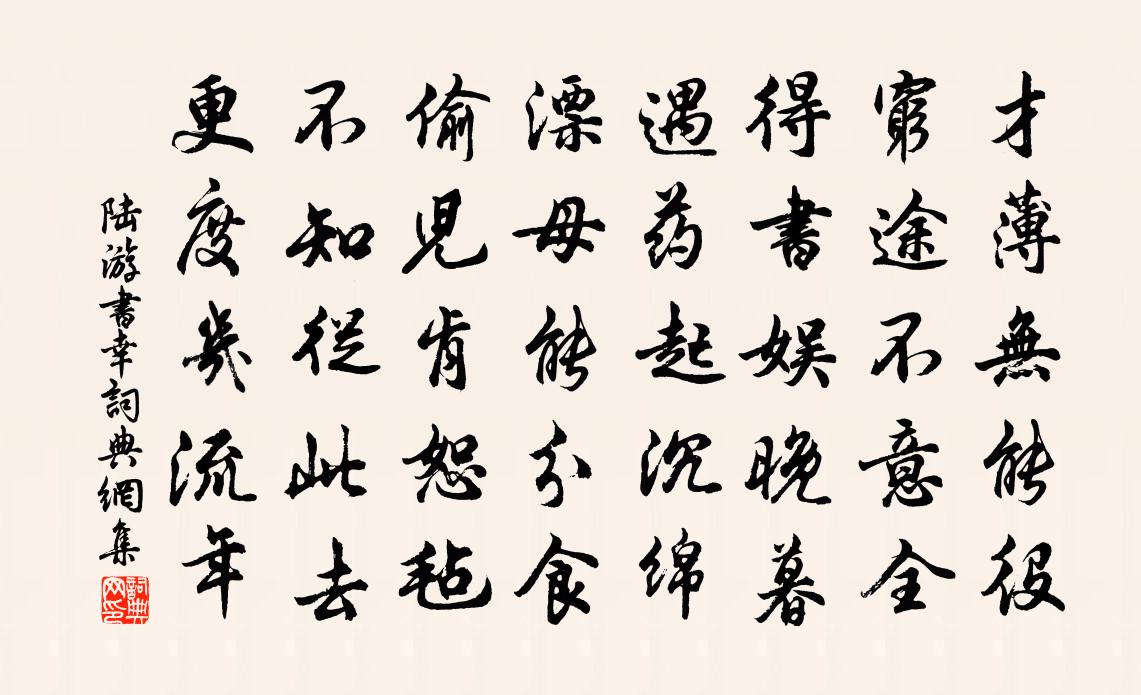 才薄無能役
窮途不意全
得書娱晚暮
遇药起沉绵
漂母能分食
偷兒肯恕毡
不知從此去
更度幾流年
陆游書幸詞典網集
詞典网印